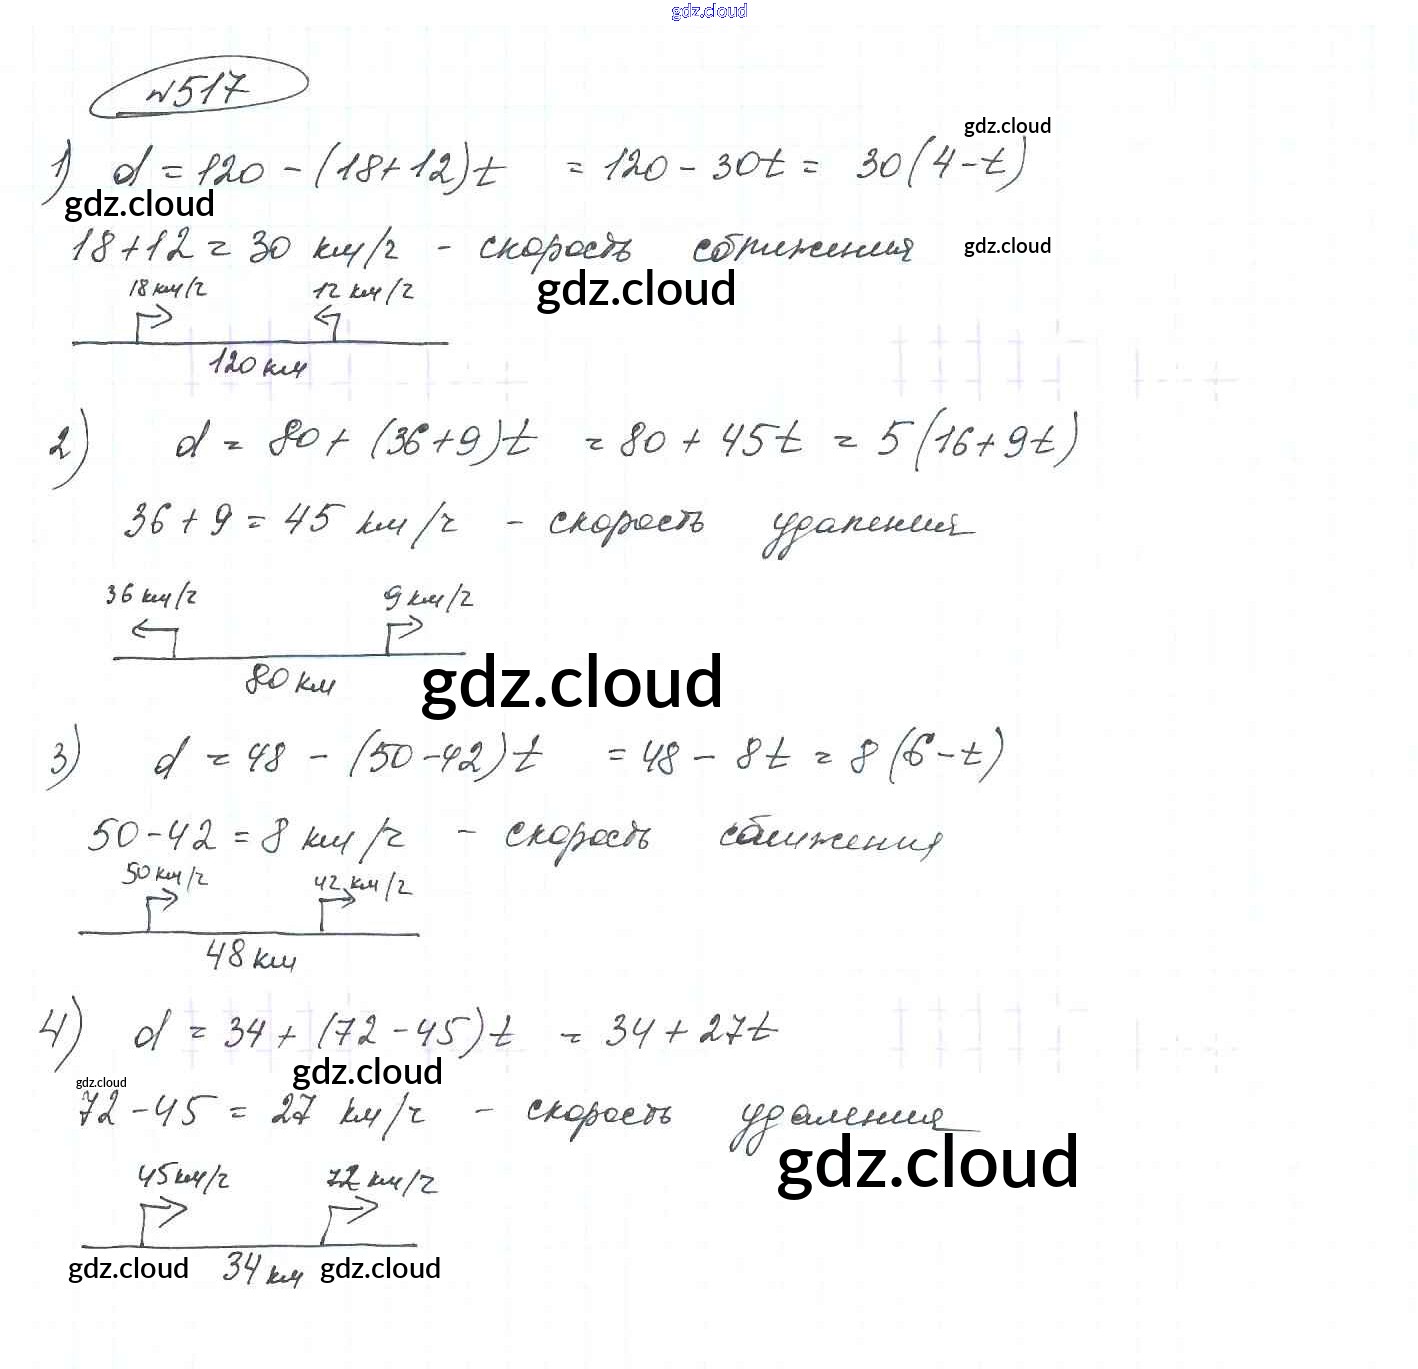 gdz.cloud
№517
gdz.cloud
1) d = 120 - (18+12)t = 120 - 30t = 30(4-t)
gdz.cloud
18+12 = 30 км/ч - скорость сближения gdz.cloud
gdz.cloud
18 км/ч 12 км/ч
120 км
2) d = 80 + (36+9)t = 80 + 45t = 5(16+9t)
36 + 9 = 45 км/ч - скорость удаления
36 км/ч 9 км/ч
80 км
gdz.cloud
3) d = 48 - (50-42)t = 48 - 8t = 8(6-t)
50-42 = 8 км/ч - скорость сближения
50 км/ч 42 км/ч
48 км
4) d = 34 + (72-45)t = 34 + 27t
gdz.cloud
gdz.cloud
72-45 = 27 км/ч - скорость удаления
gdz.cloud
45 км/ч 72 км/ч
gdz.cloud 34 км gdz.cloud